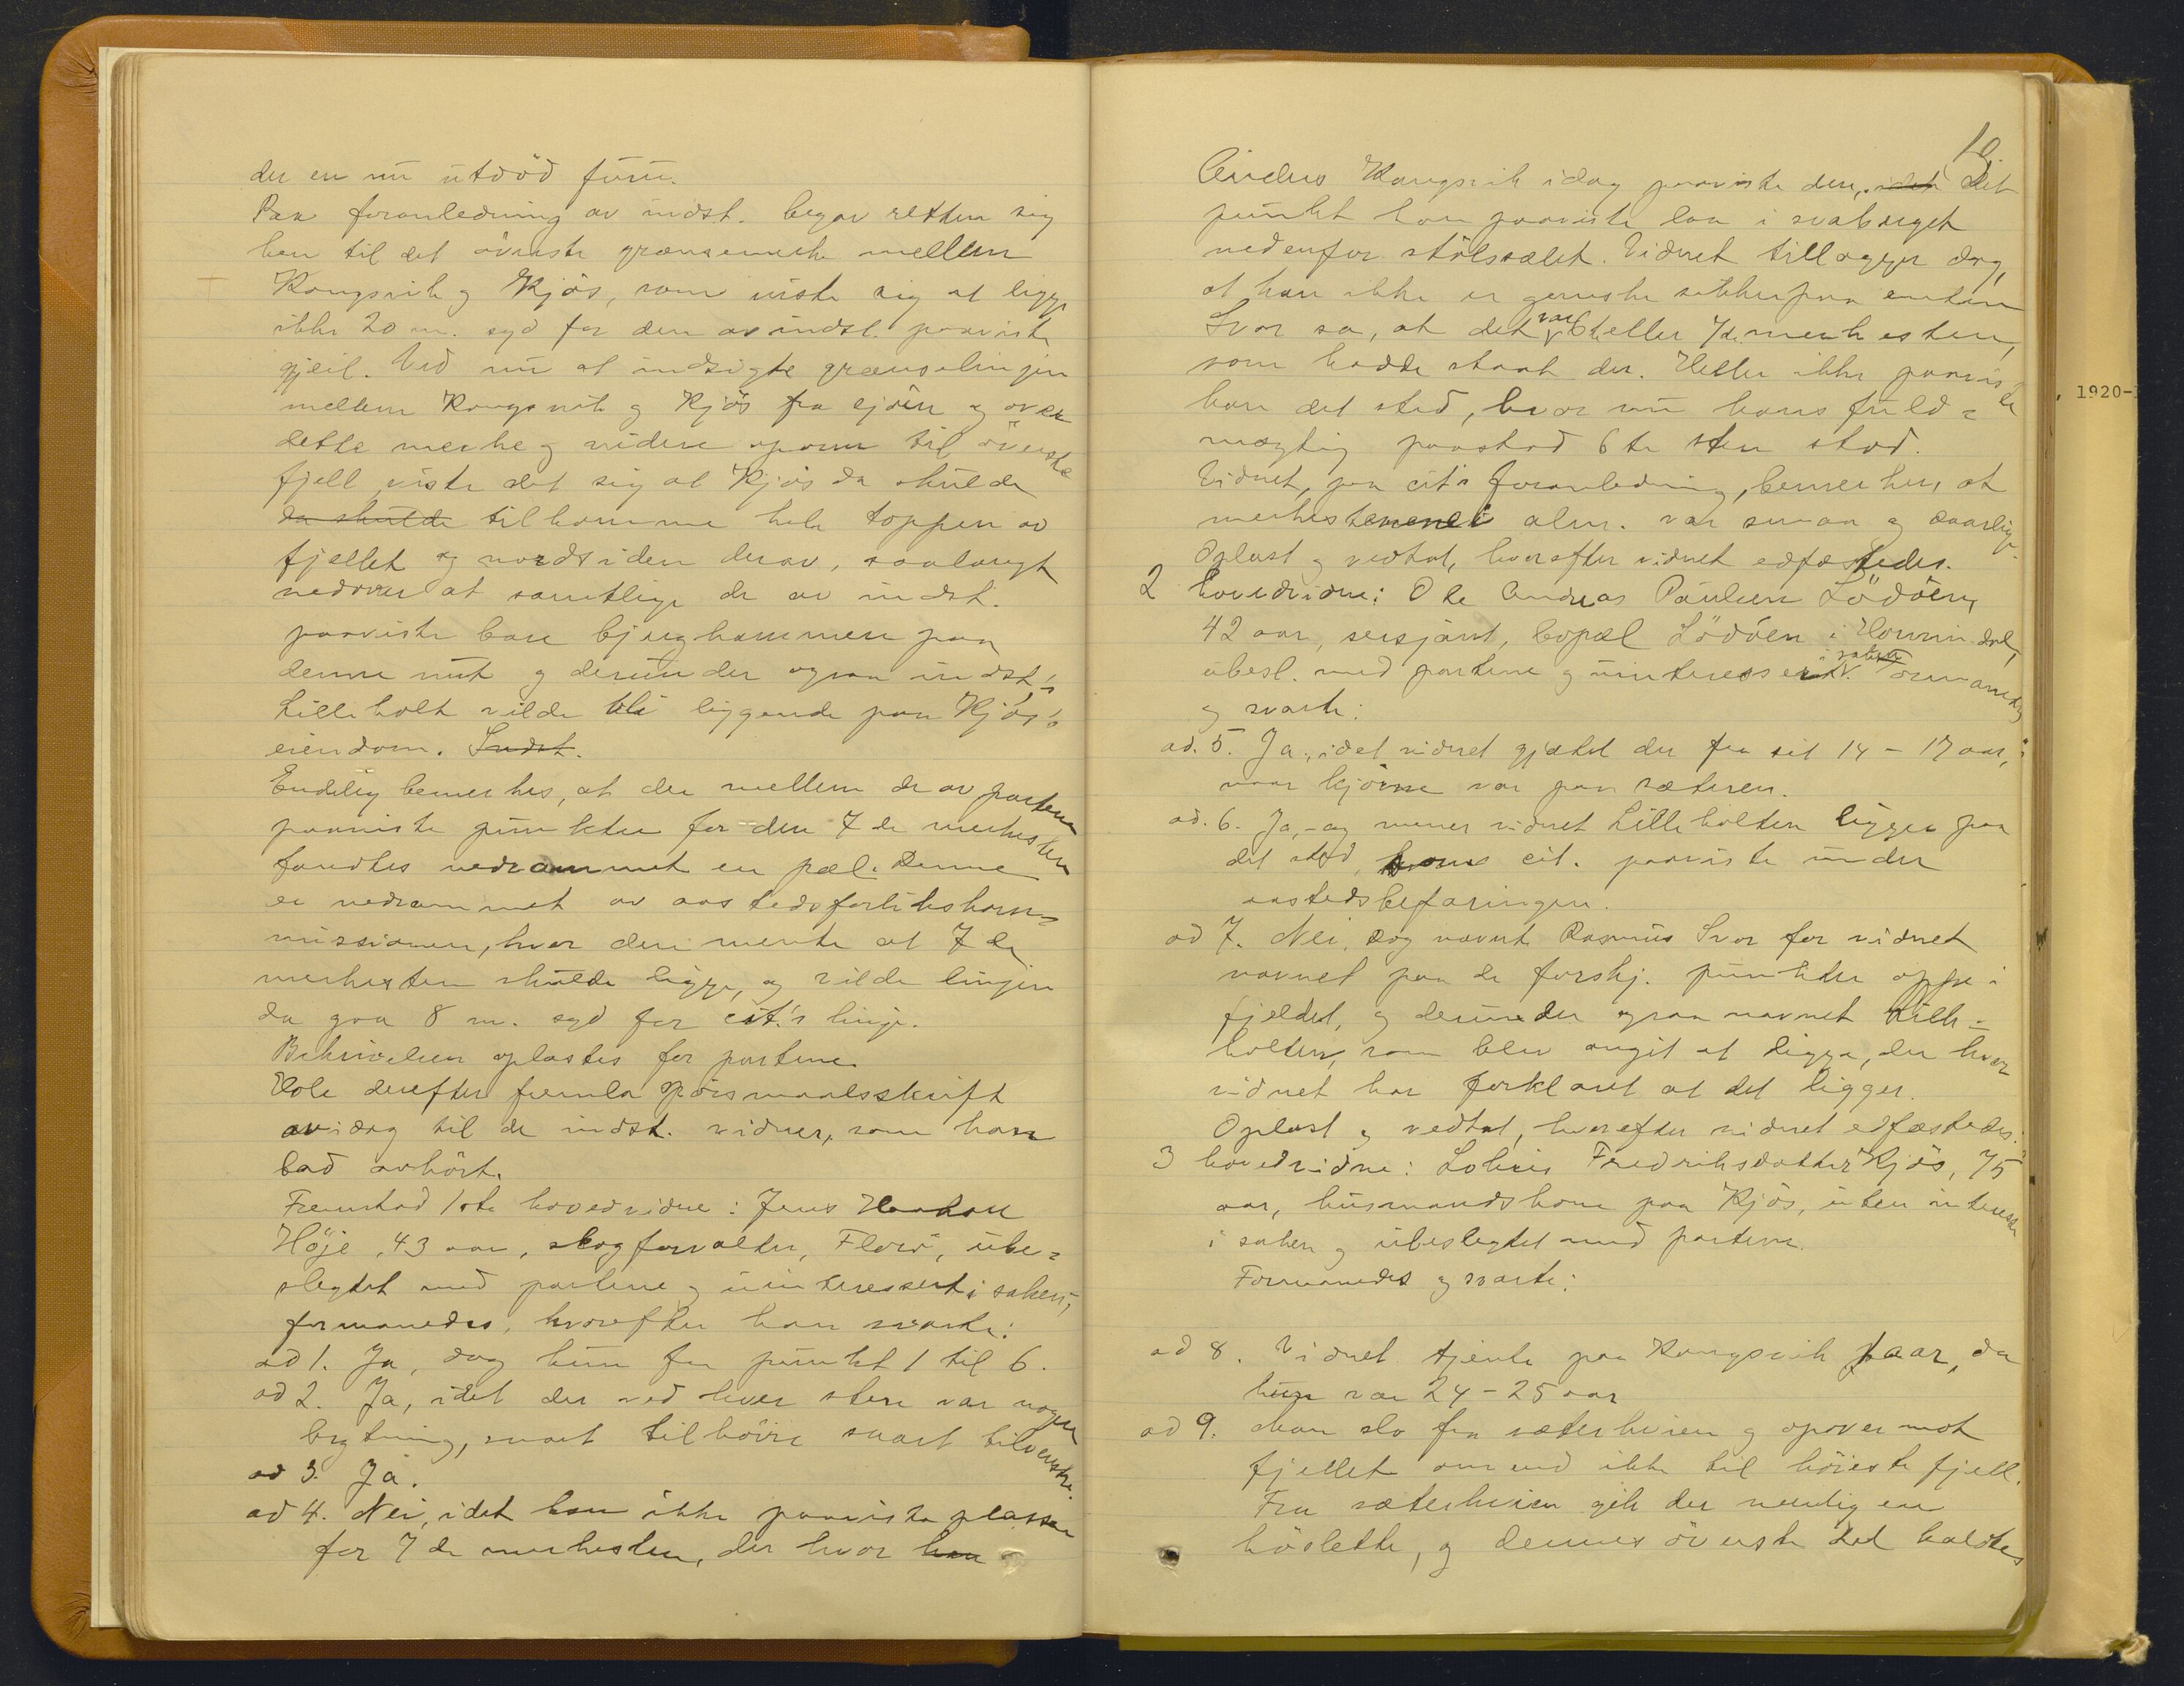 der en nu utdöd furu.
Paa foranledning av indst. begav retten sig
hen til det överste grænsemerke mellem
Kongsvik og Kjös, som viste sig at ligge
ikke 20 m. syd for den av indst. paaviste
gjeil. Ved nu at indsigte grænselinjen
mellem Kongsvik og Kjös fra sjöen og over
dette merke og videre opover til överste
fjell, viste det sig at Kjös da skulde
da skulde tilkomme hele toppen av
fjellet og nordsiden derav, saalangt
nedover at samtlige de av indst.
paaviste bare bjerghammere paa
denne nut og derunder ogsaa indst.'s
Lilleholt vilde bli liggende paa Kjös's
eiendom. Indst.
Endelig bemerkes, at der mellem de av partene
paaviste punkter for den 7de merkesten
fandtes nedrammet en pæl. Denne
er nedrammet av aastedsforlikskom-
missionen, hvor den mente at 7de
merkesten skulde ligge, og vilde linjen
da gaa 8 m. syd for cit.'s linje.
Beskrivelsen oplæstes for partene.
Hole derefter fremla spörsmaalsskrift
av idag til de indst. vidner, som han
bad avhört.
Fremstod 1ste hovedvidne: Jens Haakon
Höje, 43 aar, skogforvalter, Florö, ube-
slegtet med partene og uinteressert i saken,
formanedes, hvorefter han svarte:
ad 1. Ja, dog kun fra punkt 1 til 6.
ad 2. Ja, idet der ved hver sten var nogen
bygtning, snart tilhöire snart tilvenstre.
ad 3. Ja.
ad 4. Nei, idet han ikke paaviste plassen
for 7de merkesten, der hvor han
19.
Anders Kongsvik idag paaviste den, idet Det
punkt han paaviste laa i svaberget
nedenfor stölsvælet. Vidnet tillægger dog,
at han ikke er ganske sikker paa enten
Svor sa, at det var 6te eller 7de merkesten,
som hadde staat der. Heller ikke paaviste
han det sted, hvor nu hans fuld-
mægtig paastod 6te sten stod.
Vidnet, paa cit's foranledning, bemerker, at
merkestenene i alm. var smaa og daarlige.
Oplæst og vedtat, hvorefter vidnet edfæstedes.
2 hovedvidne: Ole Andreas Paulsen Lödöen,
42 aar, sersjant, bopæl Lödöen i Hornindal,
ubesl. med partene og uinteressert i saken. Formanedes
og svarte:
ad. 5. Ja, idet vidnet gjætet der fra sit 14 - 17 aar,
naar kjörne var paa sæteren.
ad. 6. Ja, - og mener vidnet Lilleholten ligger paa
det sted, som cit. paaviste under
aastedsbefaringen.
ad 7. Nei, dog nævnte Rasmus Svor for vidnet
navnet paa de forskj. punkter oppe i
fjeldet, og derunder ogsaa navnet Lille-
holten, som blev angit at ligge, der hvor
vidnet har forklaret at det ligger.
Oplæst og vedtat, hvorefter vidnet edfæstedes.
3 hovedvidne: Lovise Fredriksdatter Kjös, 75
aar, husmandskone paa Kjös, uten interesse
i saken og ubeslegtet med partene.
Formanedes og svarte:
ad 8. Vidnet tjente paa Kongsvik 1 aar, da
hun var 24 - 25 aar
ad 9. Man slo fra sæterkvien og opover mot
fjellet om end ikke til höieste fjell.
Fra sæterkvien gik der nemlig en
höslette, og dennes överste del kaldtes
1920-